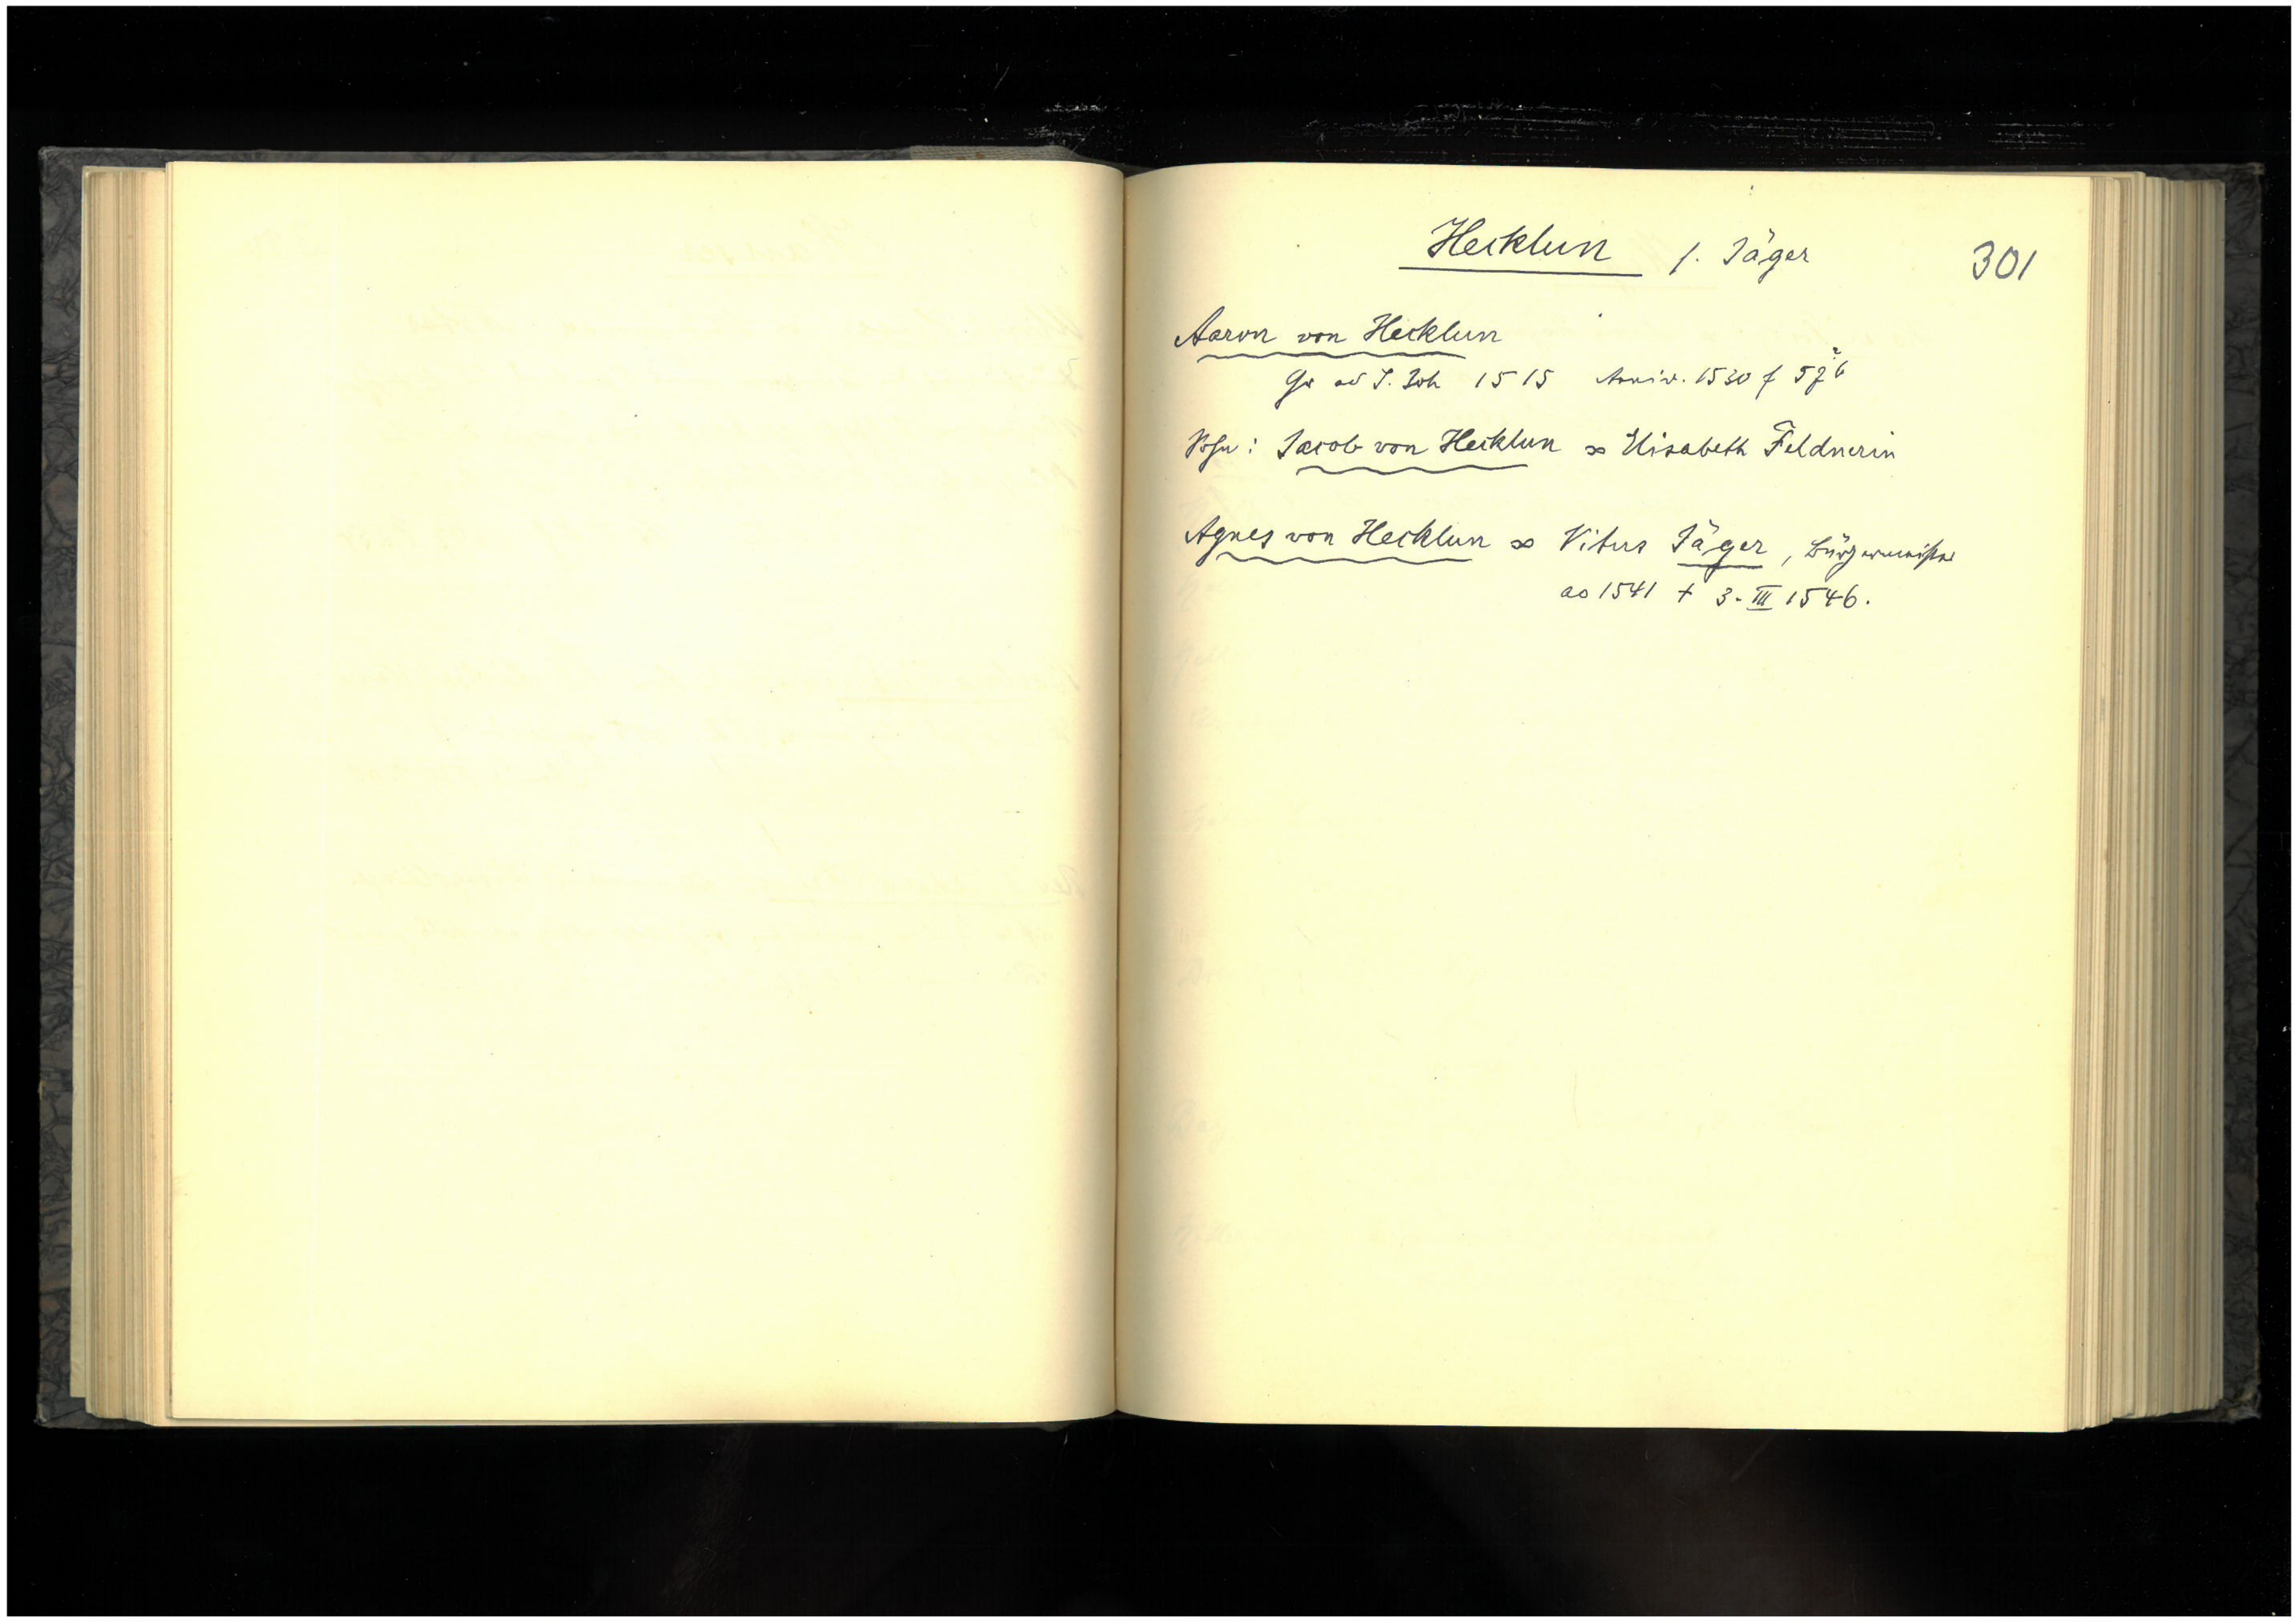 Hecklun s. Jäger 301
Aaron von Hecklun
Gr ad S. Joh 1515 Anniv. 1530 f
Sohn: Jacob von Hecklun ∞ Elisabeth Feldnerin
Agnes von Hecklun ∞ Vitus Jäger, Bürgermeister
ao 1541 † 3. III 1546.